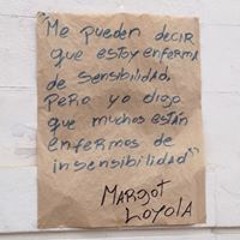 "Me pueden decir
que estoy enferma
de sensibilidad,
pero yo digo
que muchos están
enfermos de
insensibilidad"
MARGOT
LOYOLA